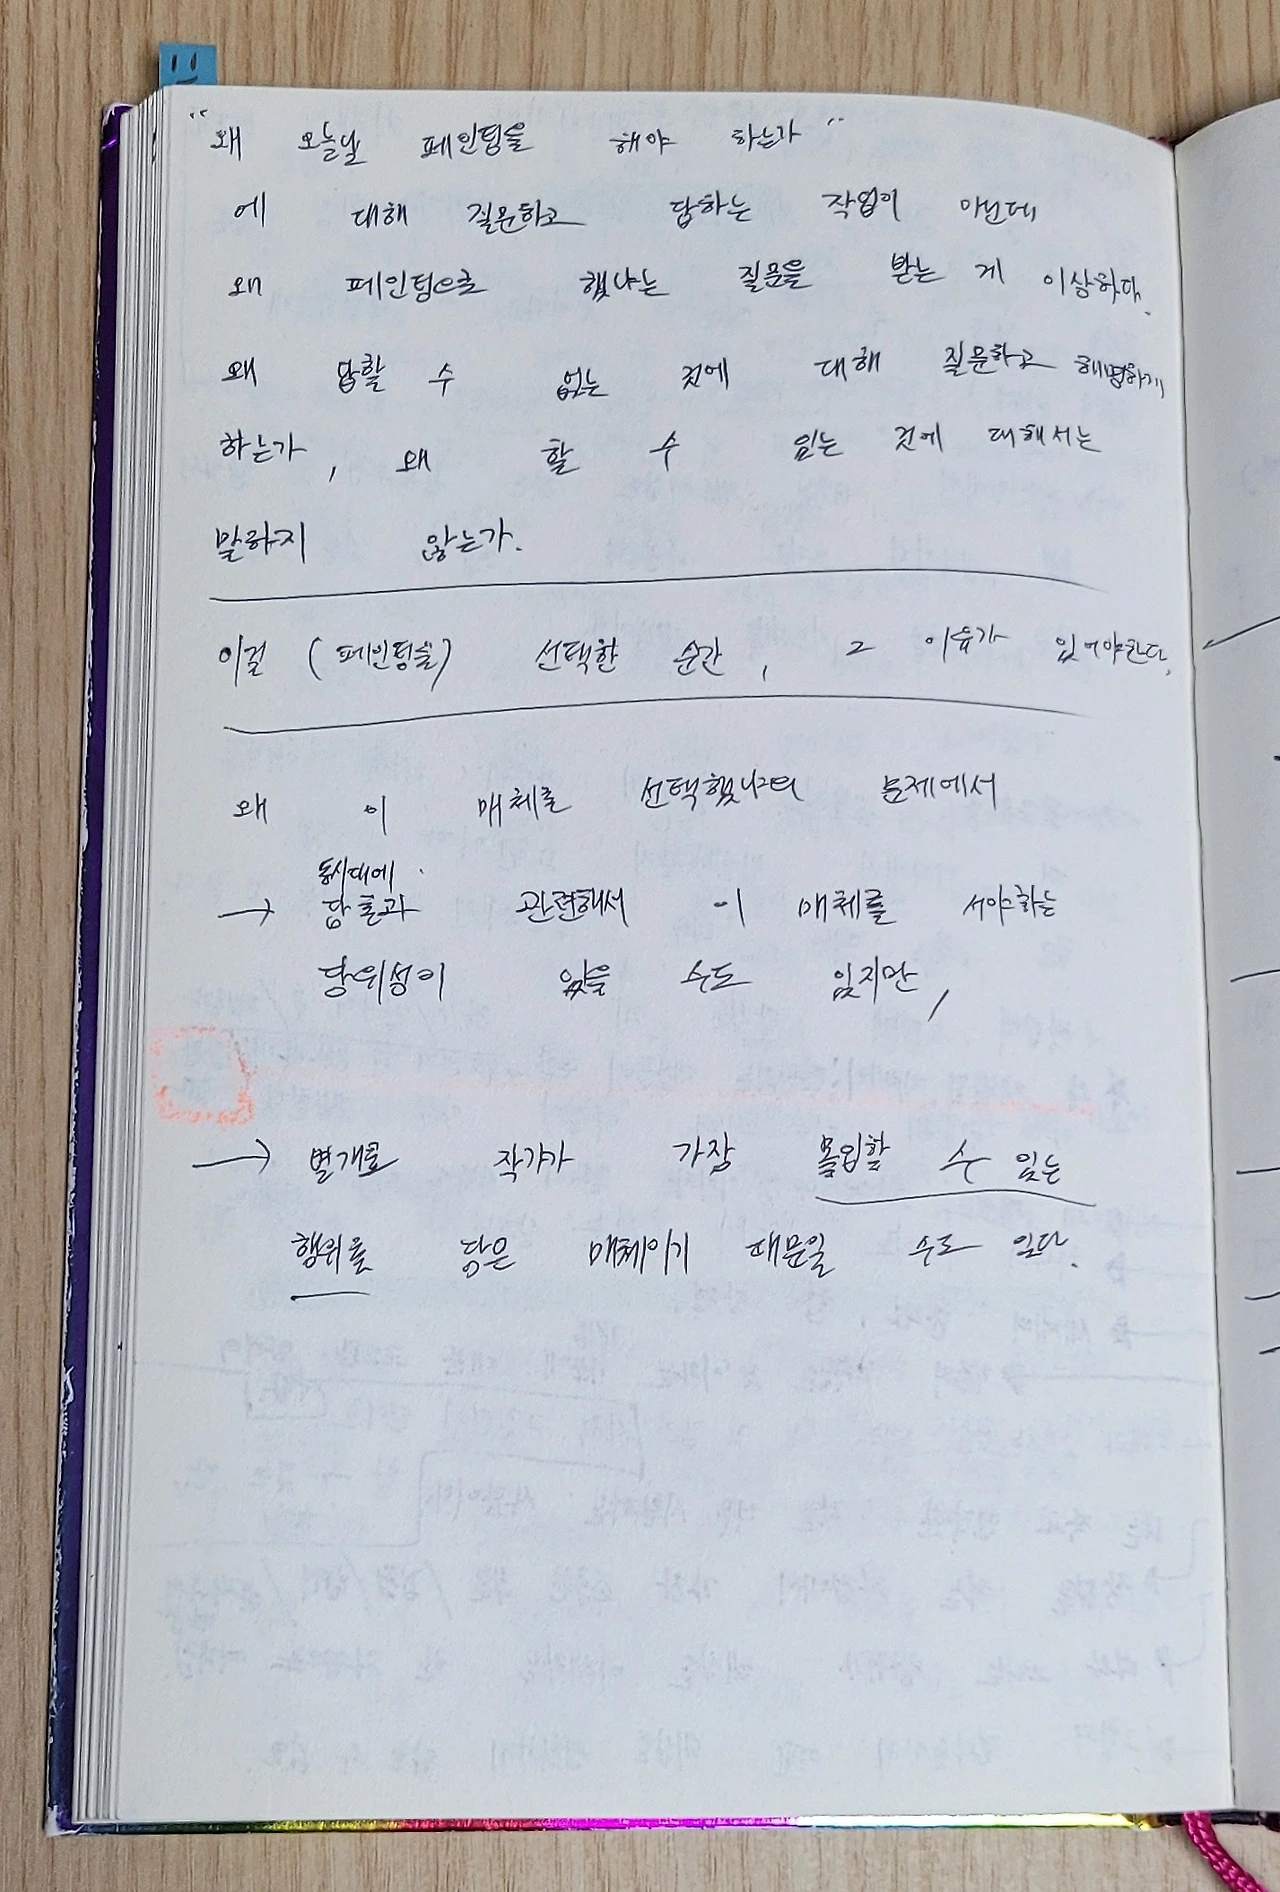 "왜 오늘날 페인팅을 해야 하는가"
에 대해 질문하고 답하는 작업이 아닌데
왜 페인팅으로 했냐는 질문을 받는 게 이상하다.
왜 답할 수 없는 것에 대해 질문하고 해명하게
하는가, 왜 할 수 있는 것에 대해서는
말하지 않는가.
이걸 (페인팅을) 선택한 순간, 그 이유가 있어야한다.
왜 이 매체를 선택했냐의 문제에서
동시대에
→ 담론과 관련해서 이 매체를 써야하는
당위성이 있을 수도 있지만,
→ 별개로 작가가 가장 몰입할 수 있는
행위를 담은 매체이기 때문일 수도 있다.